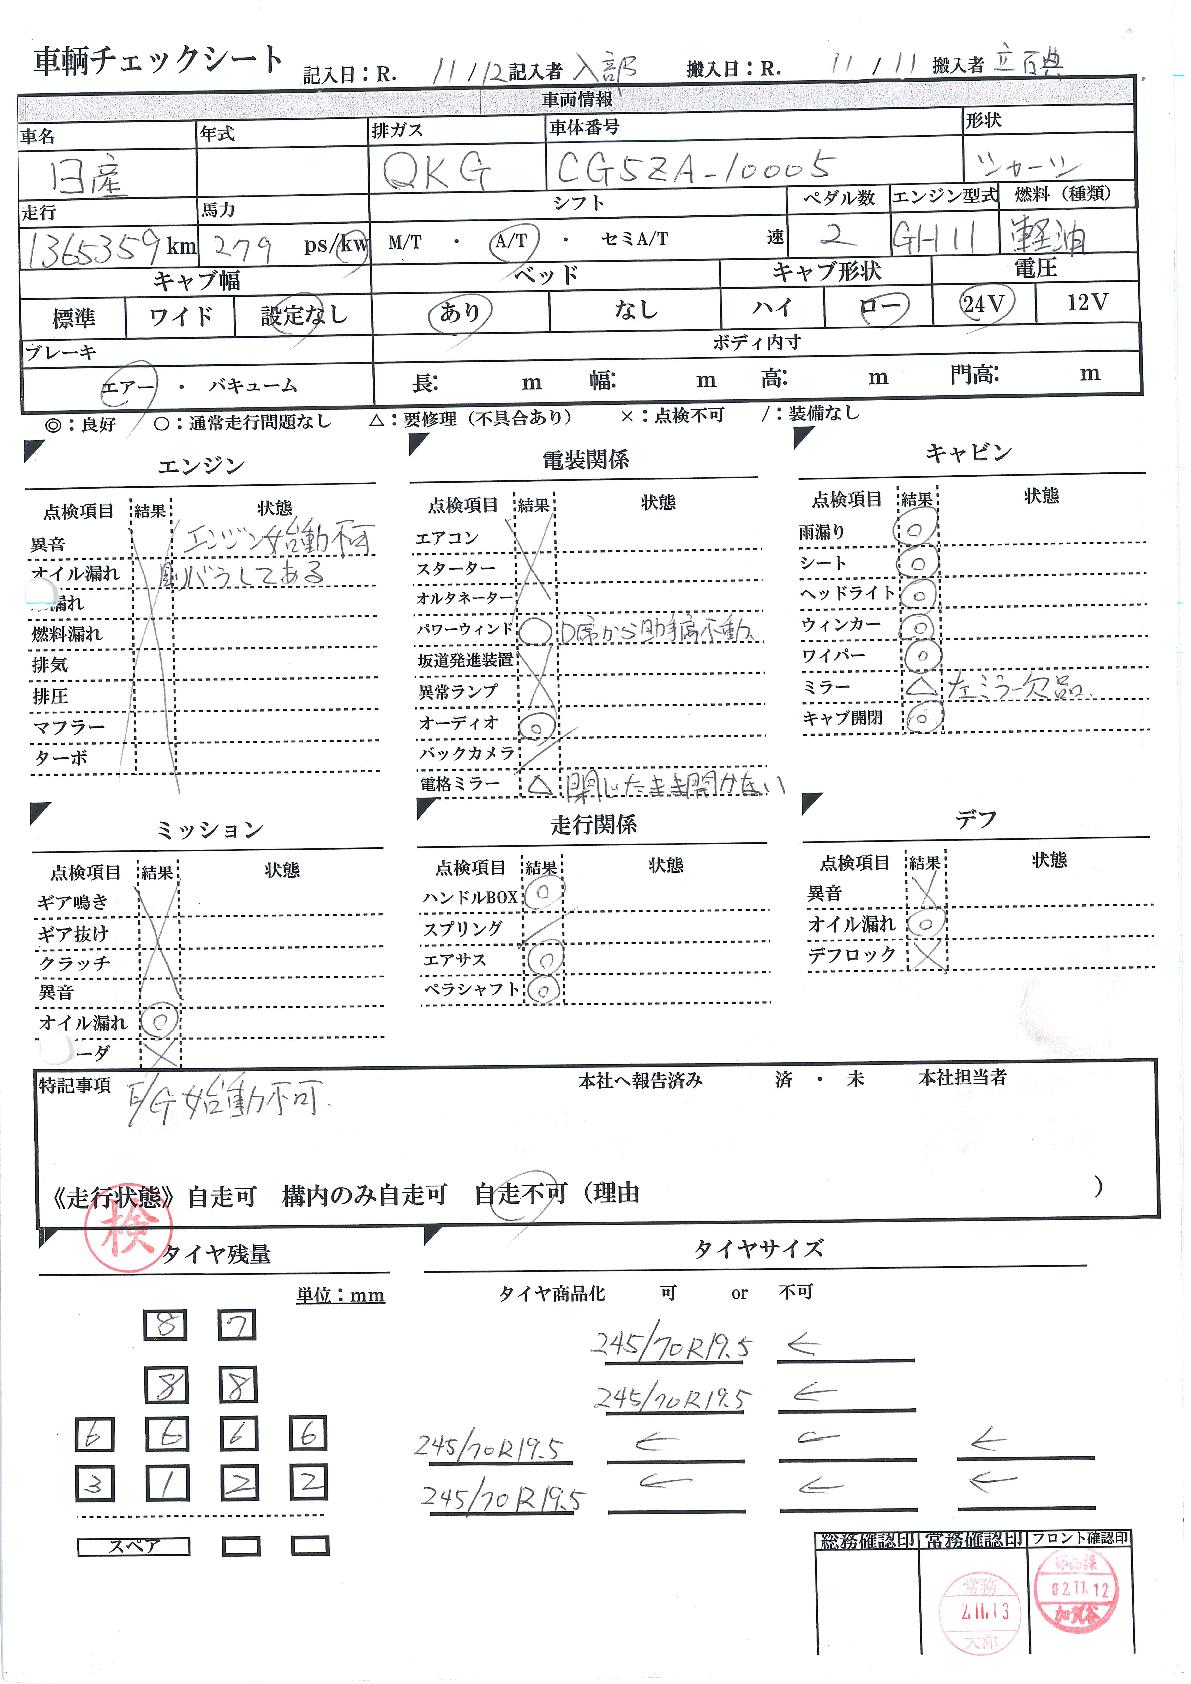 車輌チェックシート 記入日：R. 11/12 記入者 入部 搬入日：R. 11/11 搬入者 立百典
車両情報
車名 年式 排ガス 車体番号 形状
日産 QKG CG5ZA-10005
走行 馬力 シフト ペダル数 エンジン型式 燃料（種類）
1365359km 279 ps/kw M/T ・ A/T ・ セミA/T 速 2 GH11 軽油
キャブ幅 ベッド キャブ形状 電圧
標準 ワイド 設定なし あり なし ハイ ロー 24V 12V
ブレーキ ボディ内寸
エアー ・ バキューム 長: m 幅: m 高: m 門高: m
◎：良好 ○：通常走行問題なし △：要修理（不具合あり） ×：点検不可 /：装備なし
エンジン 電装関係 キャビン
点検項目 結果 状態 点検項目 結果 状態 点検項目 結果 状態
異音 エンジン始動不可 エアコン 雨漏り ◎
オイル漏れ してある スターター シート ◎
漏れ オルタネーター ヘッドライト ◎
燃料漏れ パワーウィンド ○ D席から助手席不動. ウィンカー ◎
排気 坂道発進装置 ワイパー ◎
排圧 異常ランプ ミラー △ 左ミラー欠品.
マフラー オーディオ ◎ キャブ開閉 ◎
ターボ バックカメラ /
電格ミラー △ 閉じたまま開かない
ミッション 走行関係 デフ
点検項目 結果 状態 点検項目 結果 状態 点検項目 結果 状態
ギア鳴き ハンドルBOX ◎ 異音 ×
ギア抜け スプリング / オイル漏れ ◎
クラッチ エアサス ◎ デフロック ×
異音 ペラシャフト ◎
オイル漏れ ◎
ーダ ×
特記事項 E/G始動不可. 本社へ報告済み 済 ・ 未 本社担当者
《走行状態》自走可 構内のみ自走可 自走不可（理由 ）
検
タイヤ残量 タイヤサイズ
単位：mm タイヤ商品化 可 or 不可
8 7 245/70R19.5 ←
8 8 245/70R19.5 ←
6 6 6 6 245/70R19.5 ← ← ←
3 1 2 2 245/70R19.5 ← ← ←
スペア
総務確認印 常務確認印 フロント確認印
常務 2.11.13 大津
02.11.12 加賀谷